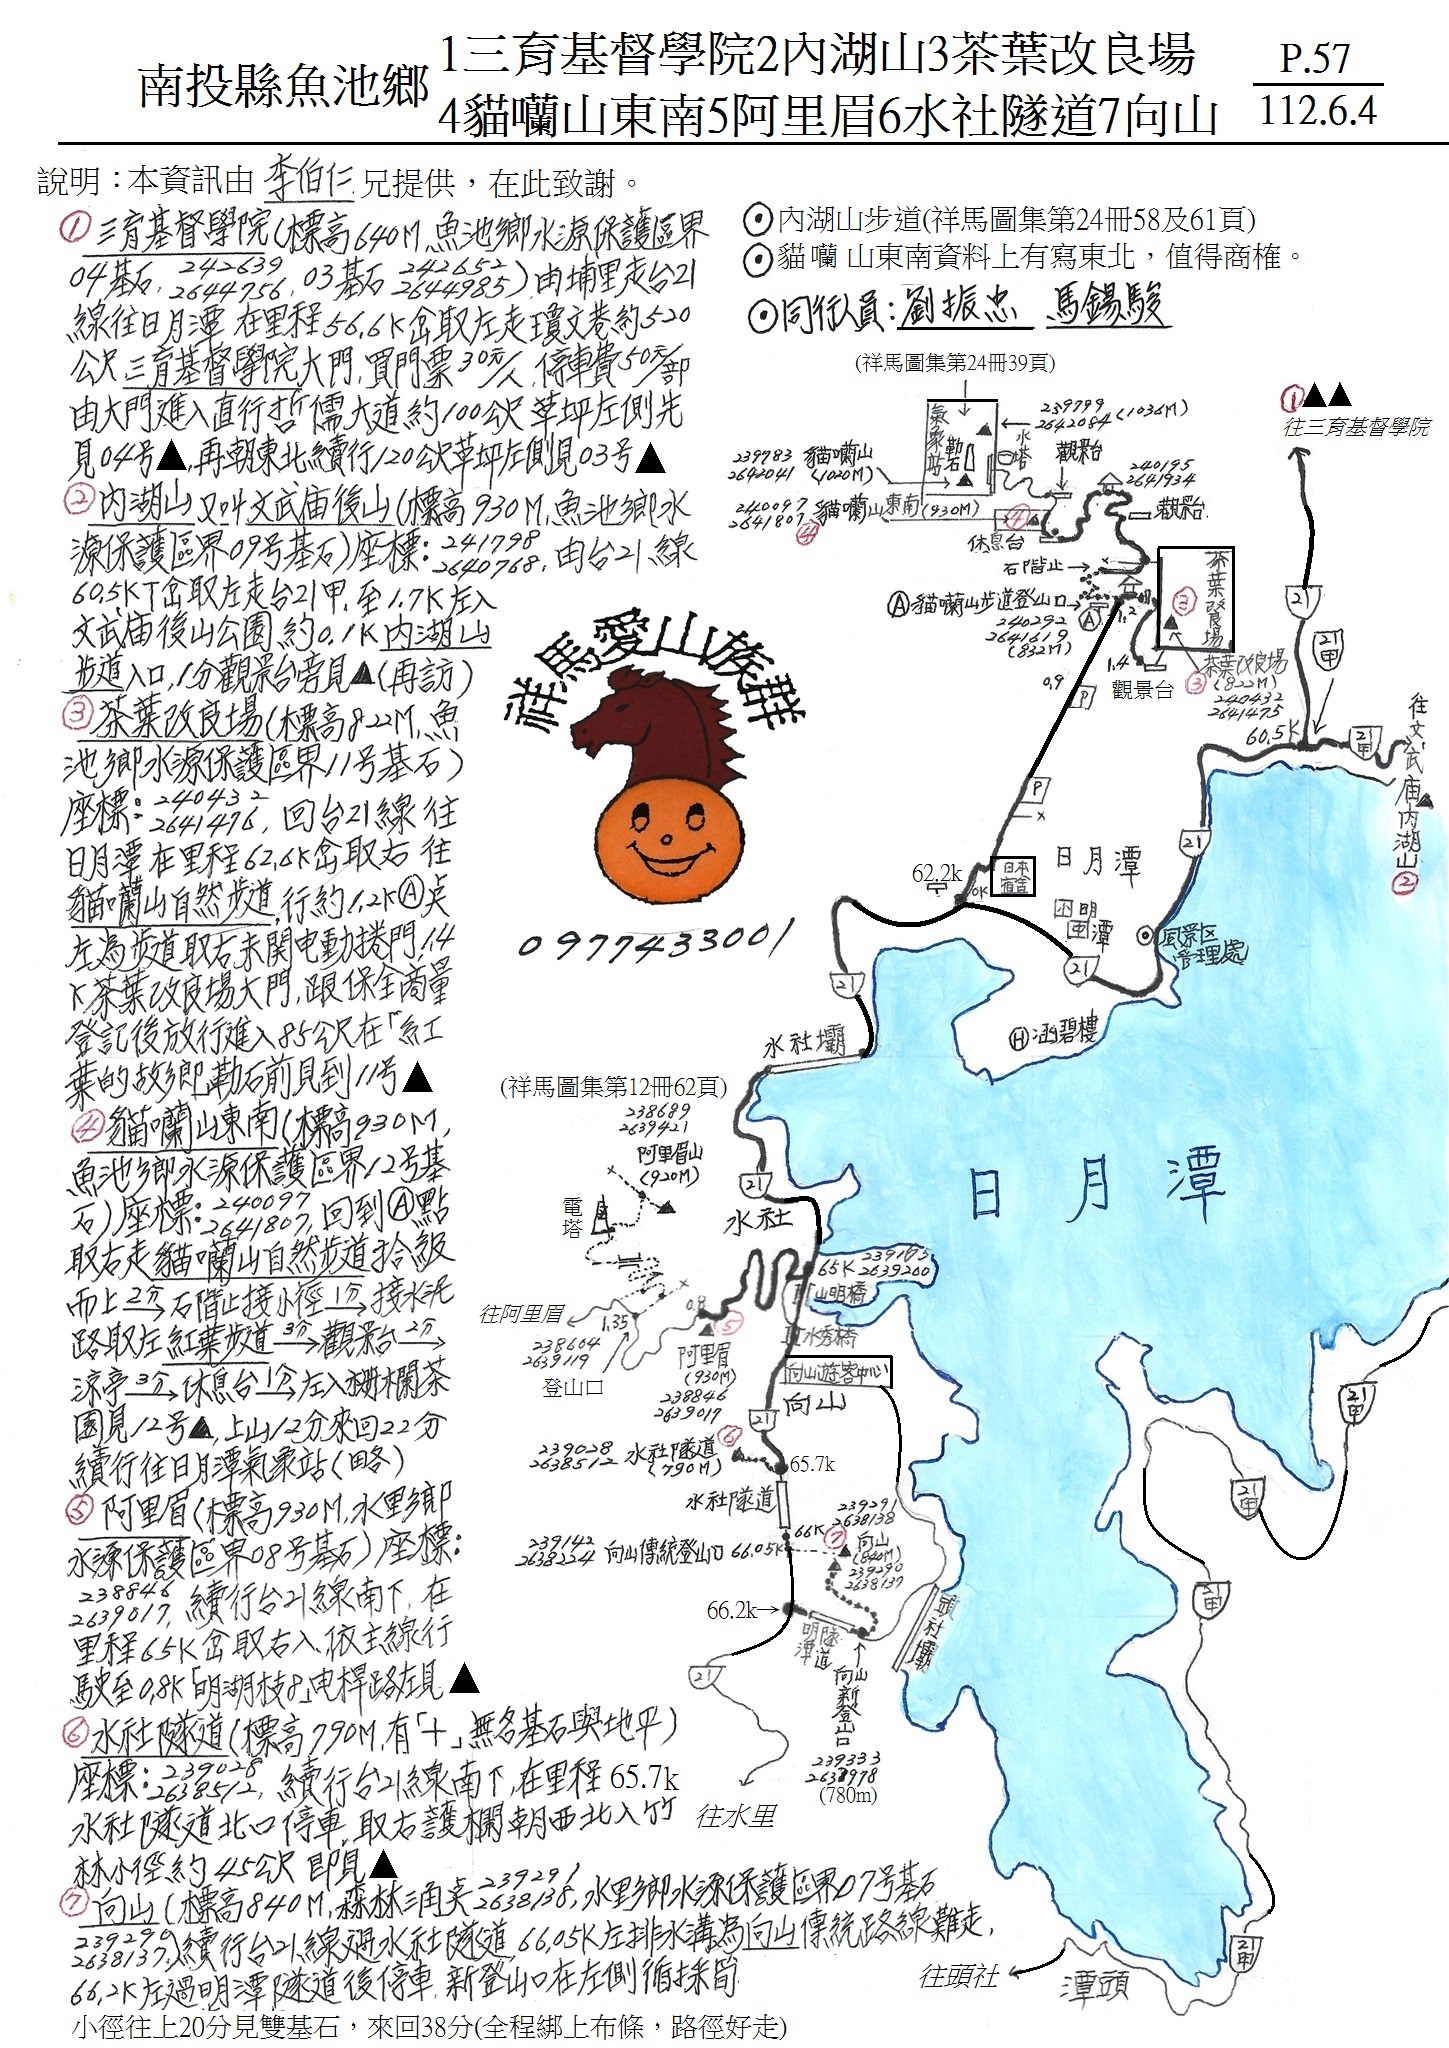 南投縣魚池鄉
1三育基督學院2內湖山3茶葉改良場
4貓囒山東南5阿里眉6水社隧道7向山
P.57
112.6.4
說明：本資訊由 李伯仁 兄提供，在此致謝。
①三育基督學院(標高640M,魚池鄉水源保護區界
04基石, 242639 2644756, 03基石 242652 2644985)由埔里走台21
線往日月潭 在里程56.6K岔取左走瓊文巷約520
公尺三育基督學院大門,買門票30元/人,停車費50元/部
由大門進入直行哲儒大道約100公尺草坪左側先
見04号▲,再朝東北續行120公尺草坪左側見03号▲
②內湖山又叫文武庙後山(標高930M,魚池鄉水
源保護區界09号基石)座標: 241798 2640768, 由台21線
60.5KT岔取左走台21甲,至1.7K左入
文武庙後山公園,約0.1K內湖山
步道入口,1分觀景台旁見▲(再訪)
③茶葉改良場(標高822M,魚
池鄉水源保護區界11号基石)
座標: 240432 2641476, 回台21線往
日月潭在里程62.6K岔取右往
貓囒山自然步道,行約1.2KⒶ奌
左為步道取右未開电動捲門,1.4
K茶葉改良場大門,跟保全商量
登記後放行進入85公尺在「紅
葉的故鄉」勒石前見到11号▲
④貓囒山東南(標高930M,
魚池鄉水源保護區界12号基
石)座標: 240097 2641807, 回到Ⓐ點
取右走貓囒山自然步道拾級
而上2分→石階止接小徑1分→接水泥
路取左紅葉步道3分→觀景台2分→
涼亭3分→休息台1分→左入柵欄茶
園見12号▲,上山12分來回22分
續行往日月潭氣象站(略)
⑤阿里眉(標高930M,水里鄉
水源保護區界08号基石)座標:
238846 2639017, 續行台21線南下,在
里程65K岔取右入,依主線行
駛至0.8K「明湖枝8」电桿路左見▲
⑥水社隧道(標高790M,有「十」無名基石與地平)
座標: 239028 2638512, 續行台21線南下,在里程65.7k
水社隧道北口停車,取右護欄朝西北入竹
林小徑約45公尺即見▲
⑦向山(標高840M,森林三角奌 239291 2638138, 水里鄉水源保護區界07号基石
239290 2638137)續行台21線過水社隧道66.05K左排水溝為向山傳統路線難走,
66.2K左過明潭隧道後停車,新登山口在左側循採筍
小徑往上20分見雙基石，來回38分(全程綁上布條，路徑好走)
祥馬愛山族群
0977433001
⊙內湖山步道(祥馬圖集第24冊58及61頁)
⊙貓囒 山東南資料上有寫東北，值得商榷。
⊙同行人員: 劉振忠 馬錫駿
(祥馬圖集第24冊39頁)
①▲▲
往三育基督學院
239799
2642084 (1036M)
氣象站
勒石
水塔
觀景台
239783
2642041
貓囒山
(1020M)
240195
2641934
觀景台
240097
2641807
貓囒山東南(930M)
④
④
休息台
石階止
茶葉改良場
③
Ⓐ貓囒山步道登山口
240292
2641619
(832M)
Ⓐ
1.2
1.4
觀景台
③茶葉改良場
(822M)
240432
2641475
0.9
P
P
21
21甲
60.5K
21甲
往文武庙內湖山
②
21
日月潭
62.2k
0K
日本宿舍
明潭
風景区
管理處
21
21
Ⓗ涵碧樓
水社壩
(祥馬圖集第12冊62頁)
238689
2639421
阿里眉山
(920M)
電塔
21
水社
日月潭
239175
2639200
65K
山明橋
往阿里眉
1.35
0.8
⑤
238604
2639119
登山口
阿里眉
(930M)
238846
2639017
水秀橋
向山遊客中心
向山
21
⑥
239028
2638512
水社隧道
(790M)
65.7k
水社隧道
239291
2638138
66K
⑦
向山
(840M)
239290
2638137
239142
2638224
向山傳統登山口
66.05K
66.2k→
明潭隧道
頭社壩
向山新登山口
239333
2637978
(780m)
21
往水里
21甲
21甲
21甲
21甲
往頭社
潭頭